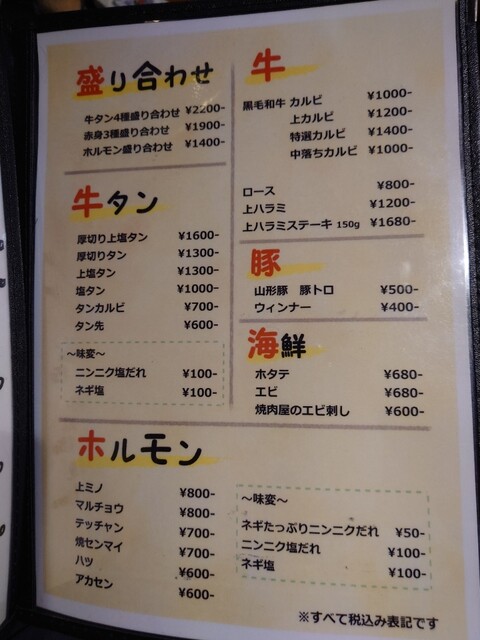 盛り合わせ
牛タン4種盛り合わせ ¥2200-
赤身3種盛り合わせ ¥1900-
ホルモン盛り合わせ ¥1400-
牛タン
厚切り上塩タン ¥1600-
厚切りタン ¥1300-
上塩タン ¥1300-
塩タン ¥1000-
タンカルビ ¥700-
タン先 ¥600-
～味変～
ニンニク塩だれ ¥100-
ネギ塩 ¥100-
牛
黒毛和牛 カルビ ¥1000-
上カルビ ¥1200-
特選カルビ ¥1400-
中落ちカルビ ¥1000-
ロース ¥800-
上ハラミ ¥1200-
上ハラミステーキ 150g ¥1680-
豚
山形豚 豚トロ ¥500-
ウィンナー ¥400-
海鮮
ホタテ ¥680-
エビ ¥680-
焼肉屋のエビ刺し ¥600-
ホルモン
上ミノ ¥800-
マルチョウ ¥800-
テッチャン ¥700-
焼センマイ ¥700-
ハツ ¥600-
アカセン ¥600-
～味変～
ネギたっぷりニンニクだれ ¥50-
ニンニク塩だれ ¥100-
ネギ塩 ¥100-
※すべて税込み表記です